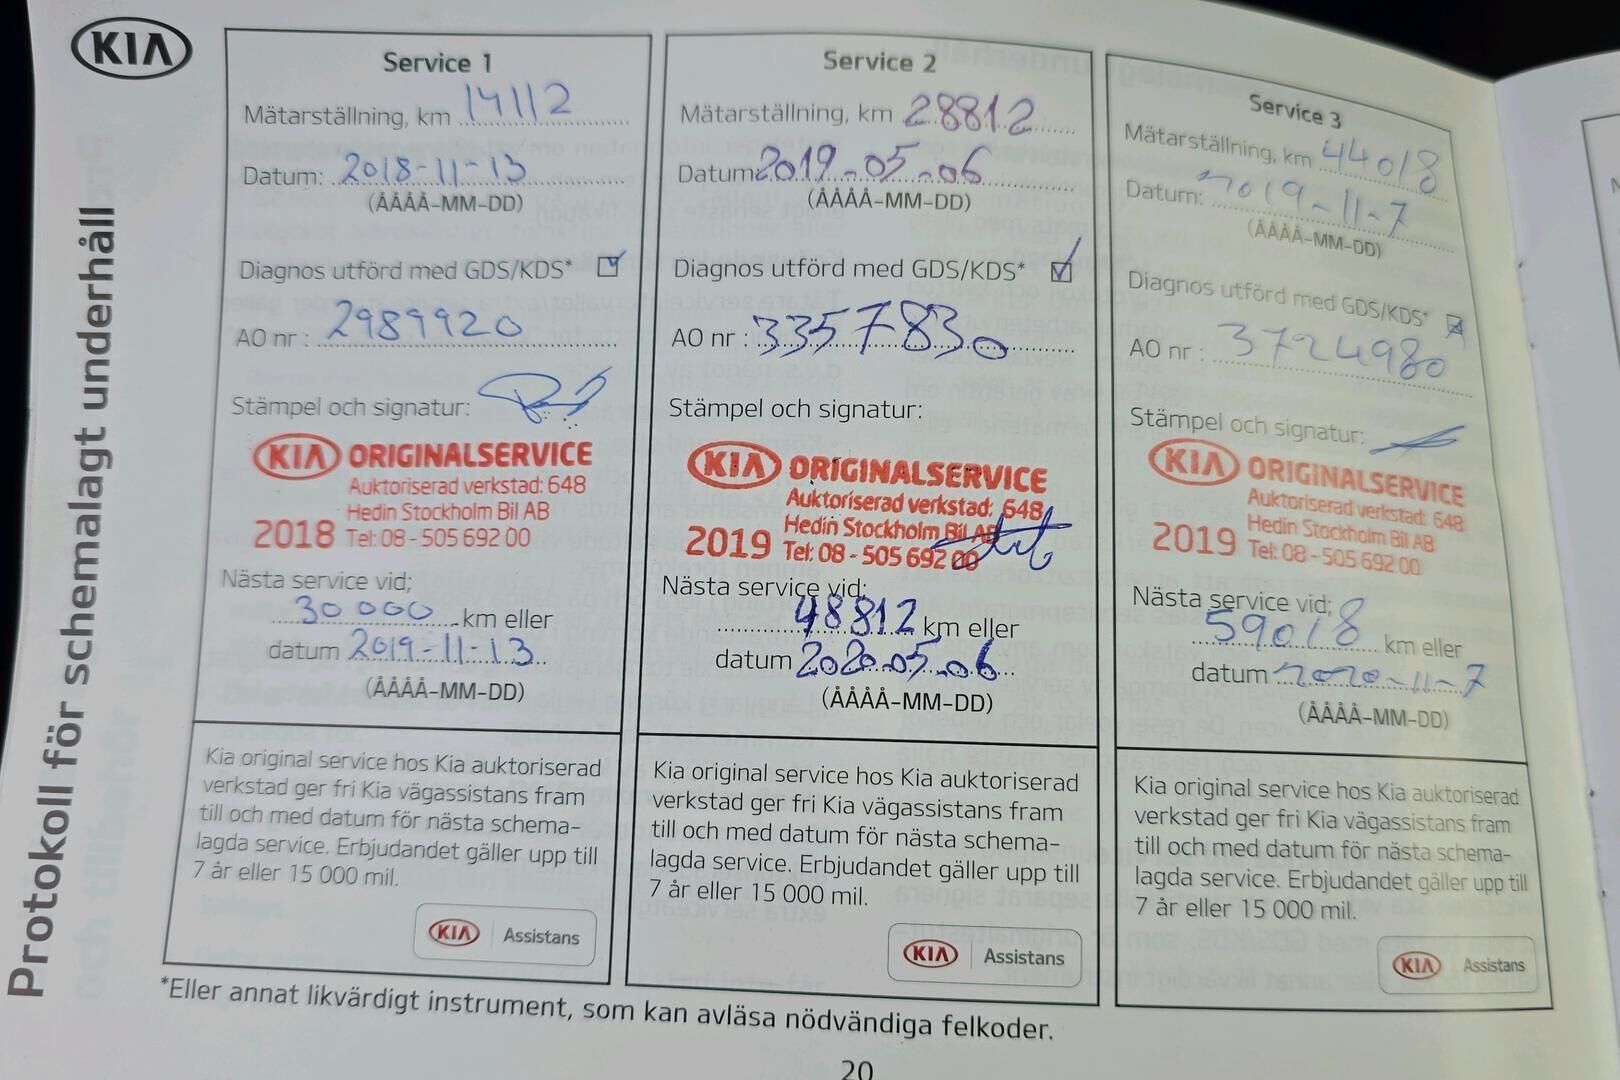 KIA
Protokoll för schemalagt underhåll
Service 1
Mätarställning, km 14112
Datum: 2018-11-13
(ÅÅÅÅ-MM-DD)
Diagnos utförd med GDS/KDS*
AO nr: 2989920
Stämpel och signatur:
KIA ORIGINALSERVICE
Auktoriserad verkstad: 648
Hedin Stockholm Bil AB
2018 Tel: 08 - 505 692 00
Nästa service vid;
30000 km eller
datum 2019-11-13
(ÅÅÅÅ-MM-DD)
Kia original service hos Kia auktoriserad
verkstad ger fri Kia vägassistans fram
till och med datum för nästa schema-
lagda service. Erbjudandet gäller upp till
7 år eller 15 000 mil.
KIA Assistans
Service 2
Mätarställning, km 28812
Datum 2019-05-06
(ÅÅÅÅ-MM-DD)
Diagnos utförd med GDS/KDS*
AO nr: 3357830
Stämpel och signatur:
KIA ORIGINALSERVICE
Auktoriserad verkstad: 648
Hedin Stockholm Bil AB
2019 Tel: 08 - 505 692 00
Nästa service vid;
48812 km eller
datum 2020-05-06
(ÅÅÅÅ-MM-DD)
Kia original service hos Kia auktoriserad
verkstad ger fri Kia vägassistans fram
till och med datum för nästa schema-
lagda service. Erbjudandet gäller upp till
7 år eller 15 000 mil.
KIA Assistans
Service 3
Mätarställning, km 44018
Datum: 2019-11-7
(ÅÅÅÅ-MM-DD)
Diagnos utförd med GDS/KDS*
AO nr: 3724980
Stämpel och signatur:
KIA ORIGINALSERVICE
Auktoriserad verkstad: 648
Hedin Stockholm Bil AB
2019 Tel: 08 - 505 692 00
Nästa service vid;
59018 km eller
datum 2020-11-7
(ÅÅÅÅ-MM-DD)
Kia original service hos Kia auktoriserad
verkstad ger fri Kia vägassistans fram
till och med datum för nästa schema-
lagda service. Erbjudandet gäller upp till
7 år eller 15 000 mil.
KIA Assistans
*Eller annat likvärdigt instrument, som kan avläsa nödvändiga felkoder.
20